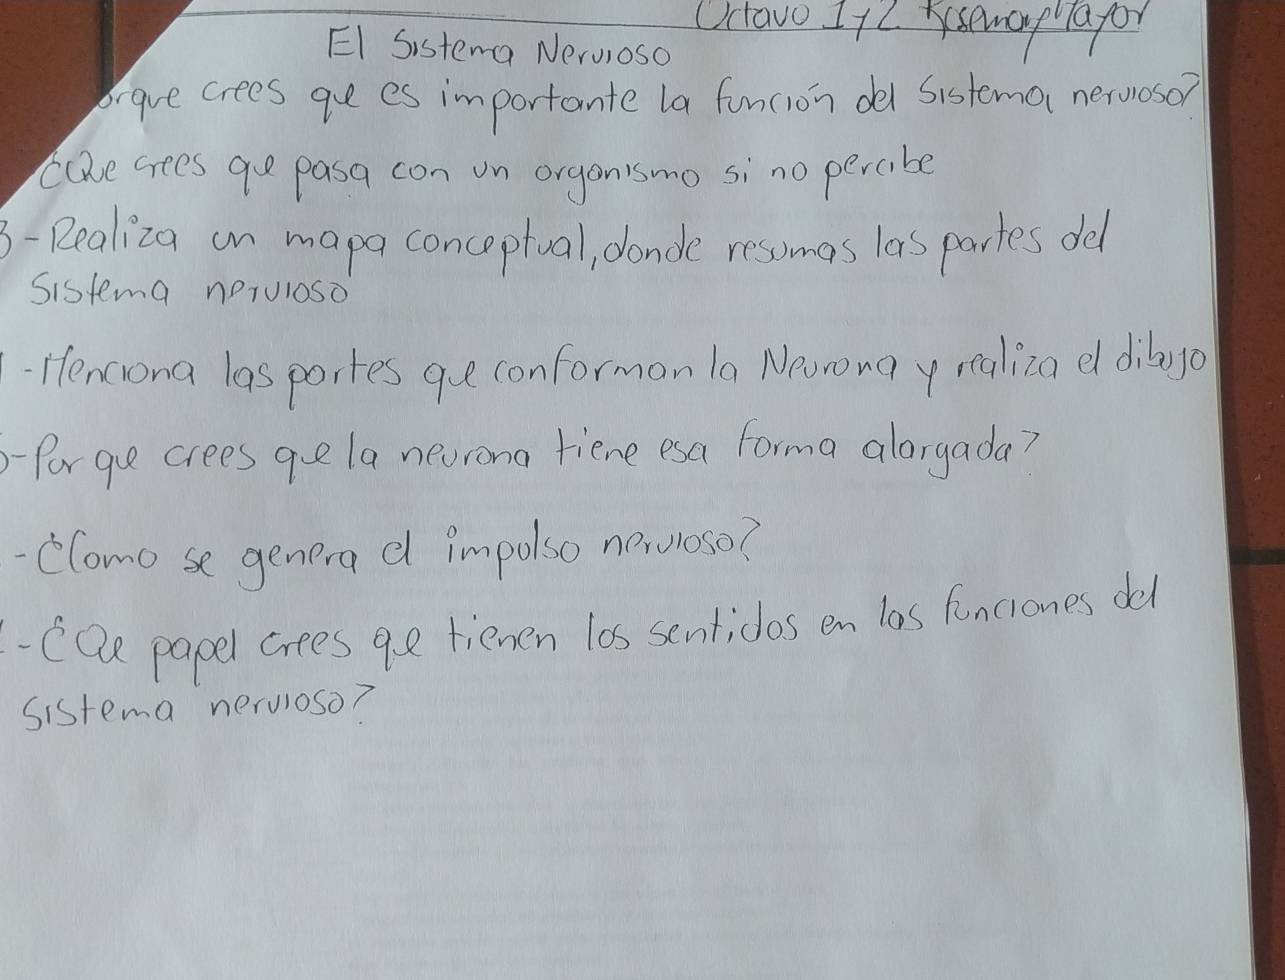 Octavo 1 y 2
El Sistema Nervioso
orque crees que es importante la función del Sistema nervioso?
¿Que crees que pasa con un organismo si no percibe
3-Realiza un mapa conceptual, donde resumas las partes del
Sistema nervioso
-Menciona las partes que conforman la Neurona y realiza el dibujo
-Por que crees que la neurona tiene esa forma alargada?
-¿Como se genera el impulso nervioso?
-¿Que papel crees que tienen los sentidos en las funciones del
sistema nervioso?